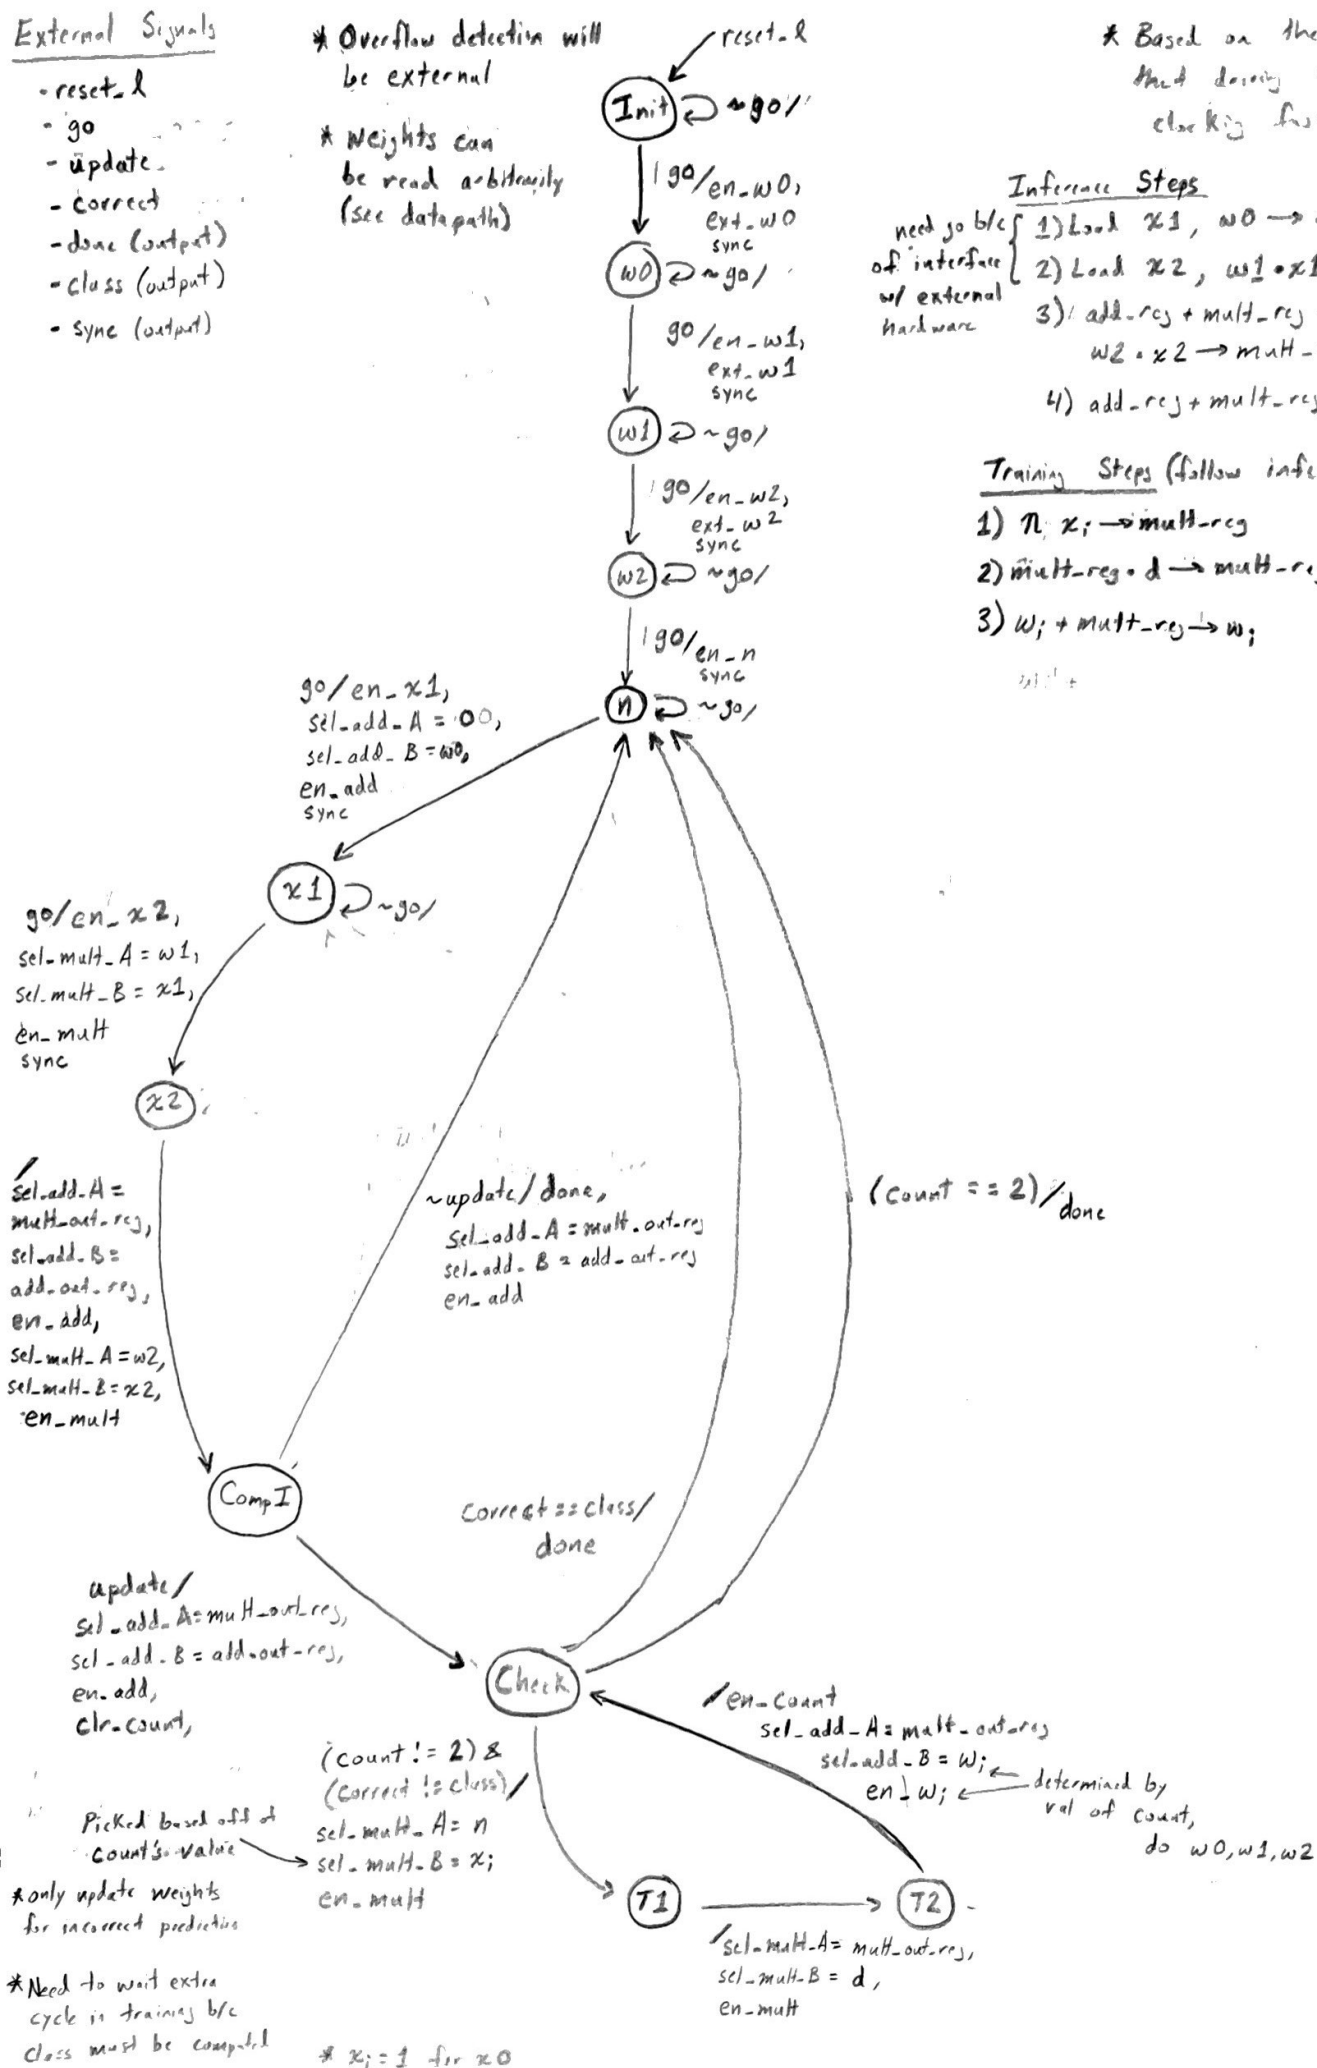 External Signals
- reset_l
- go
- update
- correct
- done (output)
- class (output)
- sync (output)
* Overflow detection will
be external
* Weights can
be read arbitrarily
(see datapath)
reset_l
Init
~go/
go/en_w0,
ext_w0
sync
w0
~go/
go/en_w1,
ext_w1
sync
w1
~go/
go/en_w2,
ext_w2
sync
w2
~go/
go/en_n
sync
n
~go/
* Based on the
that
Inference Steps
need go b/c
of interface
w/ external
hardware
1) Load x1, w0 →
2) Load x2, w1 • x1
3) add_reg + mult_reg
w2 • x2 → mult_
4) add_reg + mult_reg
Training Steps (follow infe
1) n xi → mult_reg
2) mult_reg • d → mult_reg
3) wi + mult_reg → wi
go/en_x1,
sel_add_A = 00,
sel_add_B = w0,
en_add
sync
x1
~go/
go/en_x2,
sel_mult_A = w1,
sel_mult_B = x1,
en_mult
sync
x2
/
sel_add_A =
mult_out_reg,
sel_add_B =
add_out_reg,
en_add,
sel_mult_A = w2,
sel_mult_B = x2,
en_mult
~update/done,
sel_add_A = mult_out_reg
sel_add_B = add_out_reg
en_add
(count == 2)/done
CompI
correct == class/
done
update/
sel_add_A = mult_out_reg,
sel_add_B = add_out_reg,
en_add,
clr_count,
Check
/en_count
sel_add_A = mult_out_reg
sel_add_B = wi
en_wi
determined by
val of count,
do w0, w1, w2
(count != 2) &
(correct != class)/
sel_mult_A = n
sel_mult_B = xi
en_mult
Picked based off of
count's value
* only update weights
for incorrect prediction
T1
T2
/sel_mult_A = mult_out_reg,
sel_mult_B = d,
en_mult
* Need to wait extra
cycle in training b/c
class must be computed
* xi = 1 for x0